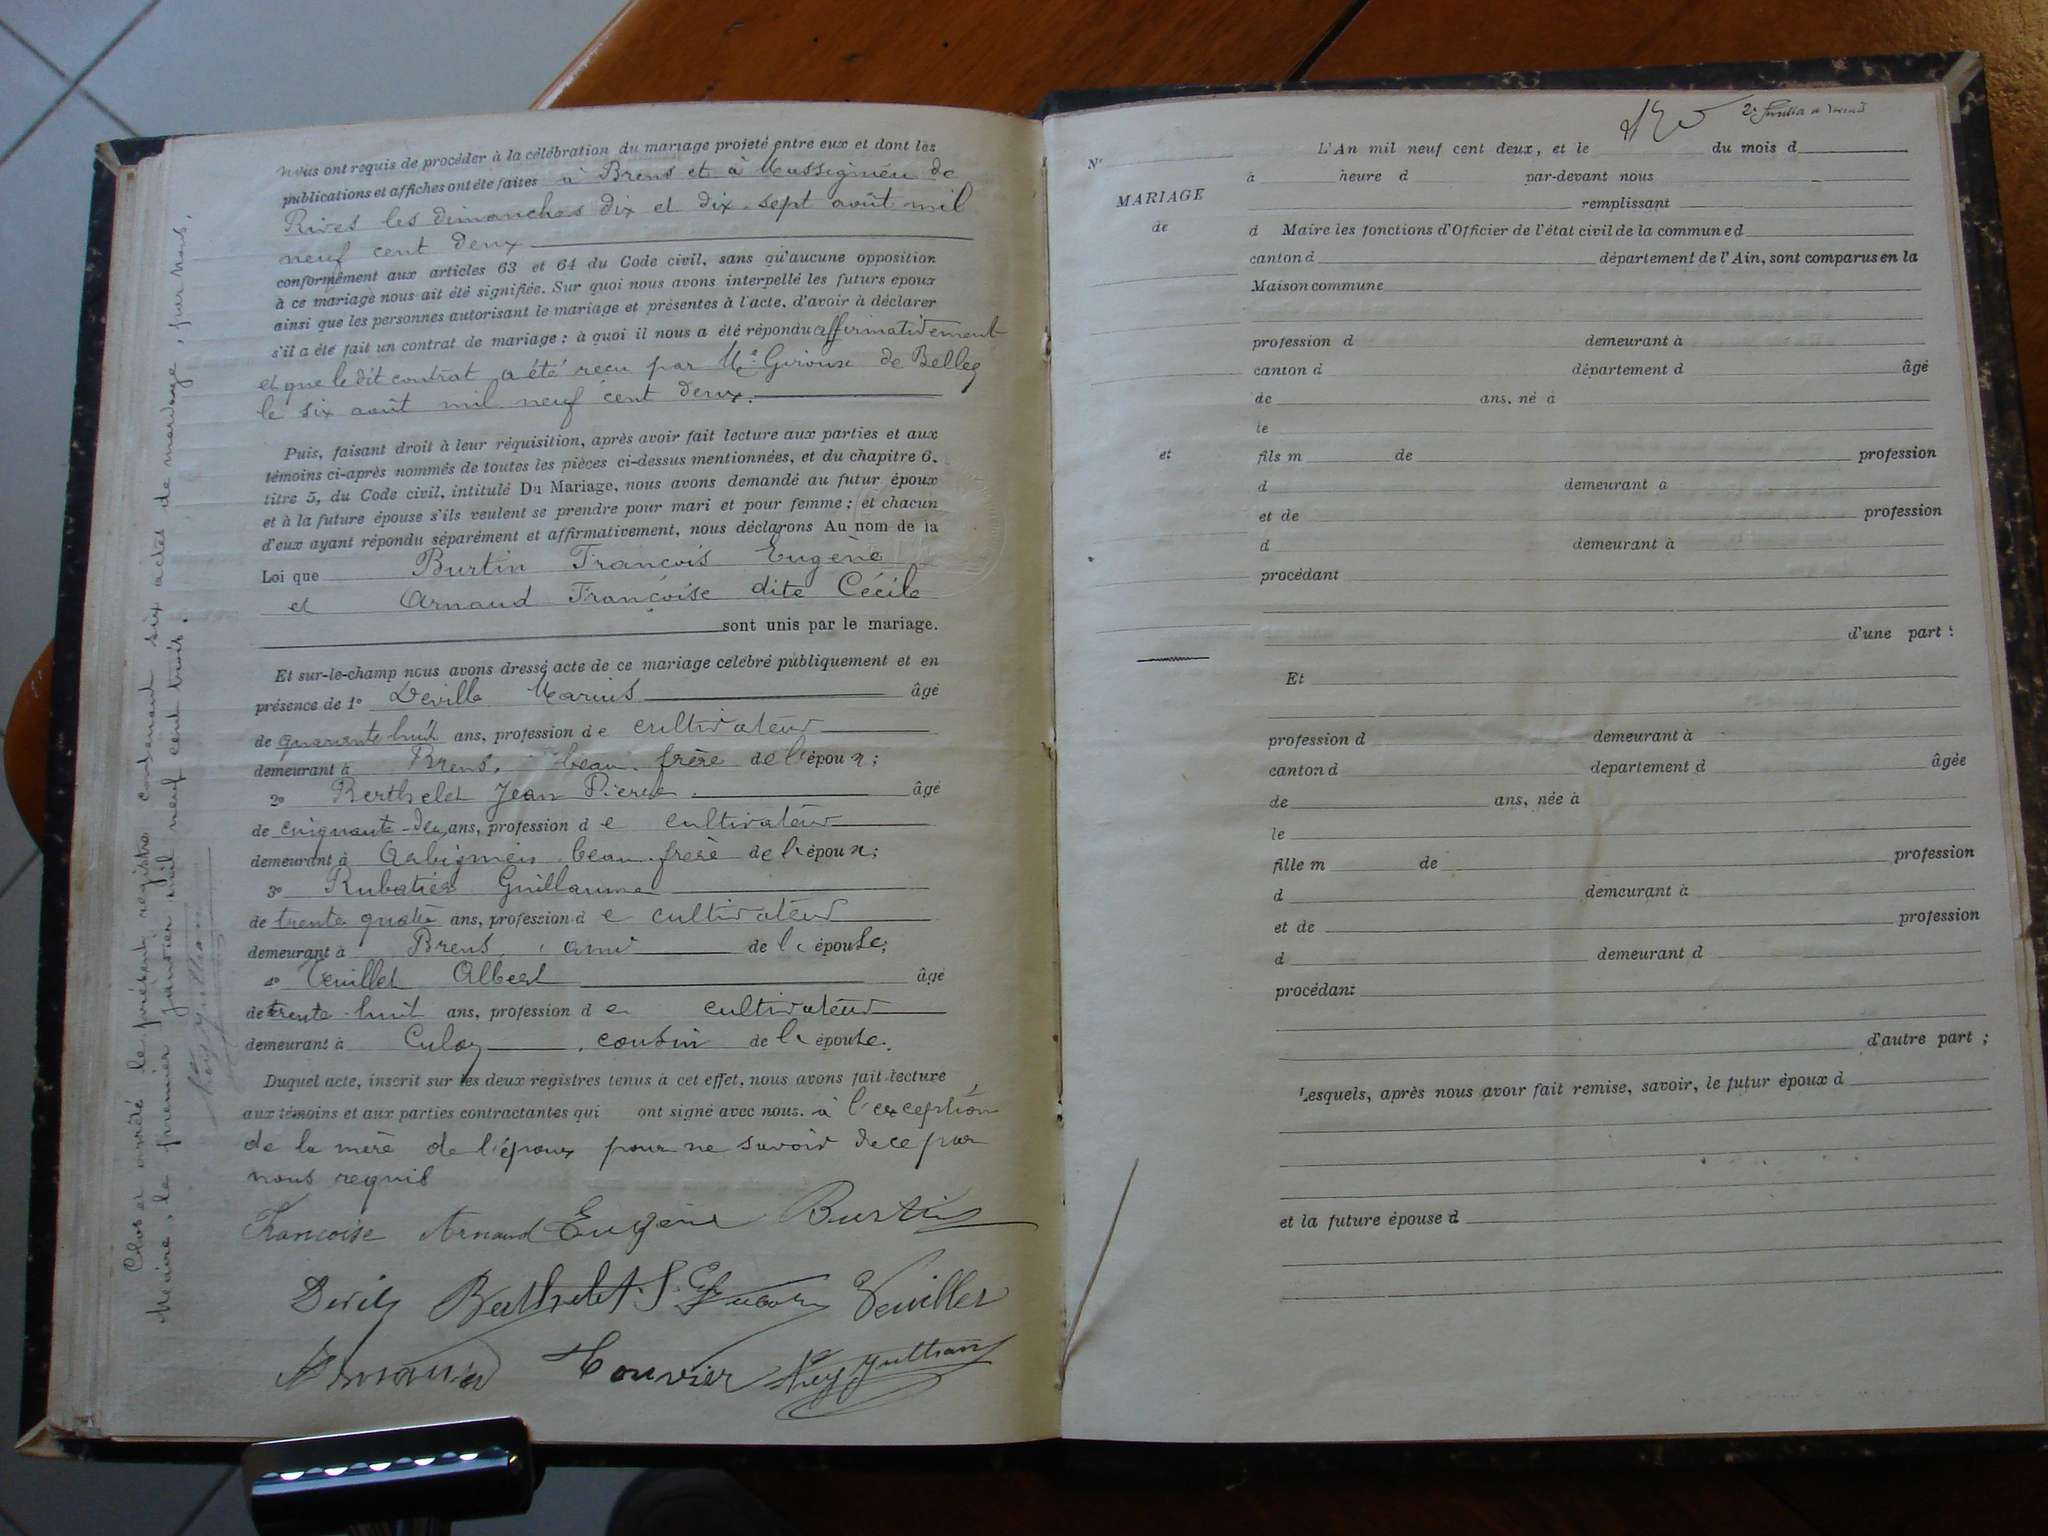 nous ont requis de procéder à la célébration du mariage projeté entre eux et dont les
publications et affiches ont été faites à Brens et à Massignieu de
Rives les dimanches dix et dix-sept août mil
neuf cent deux
conformément aux articles 63 et 64 du Code civil, sans qu'aucune opposition
à ce mariage nous ait été signifiée. Sur quoi nous avons interpellé les futurs époux
ainsi que les personnes autorisant le mariage et présentes à l'acte, d'avoir à déclarer
s'il a été fait un contrat de mariage ; à quoi il nous a été répondu affirmativement
et que le dit contrat a été reçu par Me de Belley
le six août mil neuf cent deux.
Puis, faisant droit à leur réquisition, après avoir fait lecture aux parties et aux
témoins ci-après nommés de toutes les pièces ci-dessus mentionnées, et du chapitre 6,
titre 5, du Code civil, intitulé Du Mariage, nous avons demandé au futur époux
et à la future épouse s'ils veulent se prendre pour mari et pour femme ; et chacun
d'eux ayant répondu séparément et affirmativement, nous déclarons Au nom de la
Loi que Burtin François Eugène
et Arnaud Françoise dite Cécile
sont unis par le mariage.
Et sur-le-champ nous avons dressé acte de ce mariage célébré publiquement et en
présence de 1° Deville Marius âgé
de quarante huit ans, profession d e cultivateur
demeurant à Brens, beau-frère de l'époux ;
2° Berthelet Jean Pierre âgé
de cinquante-deux ans, profession d e cultivateur
demeurant à Arbignieu beau-frère de l'époux ;
3° Rubatier Guillaume
de trente quatre ans, profession d e cultivateur
demeurant à Brens, ami de l'épouse ;
4° Veuillet Albert âgé
de trente-huit ans, profession d e cultivateur
demeurant à Culoz, cousin de l'épouse.
Duquel acte, inscrit sur les deux registres tenus à cet effet, nous avons fait lecture
aux témoins et aux parties contractantes qui ont signé avec nous. à l'exception
de la mère de l'époux pour ne savoir de ce par
nous requis
Françoise Arnaud Eugène Burtin
Berthelet Veuillet
Arnaud Touvier
Clos et arrêté le présent registre contenant six actes de mariage, par nous,
Maire, le premier janvier mil neuf cent trois.
N° L'An mil neuf cent deux, et le du mois d
à heure d par-devant nous
MARIAGE remplissant
de d Maire les fonctions d'Officier de l'état civil de la commune d
canton d département de l'Ain, sont comparus en la
Maison commune
profession d demeurant à
canton d département d âgé
de ans, né à
le
et fils m de profession
d demeurant à
et de profession
d demeurant à
procédant
d'une part :
Et
profession d demeurant à
canton d departement d âgée
de ans, née à
le
fille m de profession
d demeurant à
et de profession
d demeurant d
procédant
d'autre part ;
Lesquels, après nous avoir fait remise, savoir, le futur époux d
et la future épouse d